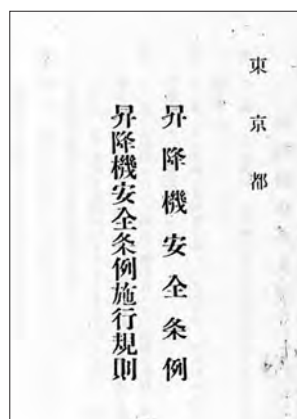 東京都
昇降機安全条例
昇降機安全条例施行規則